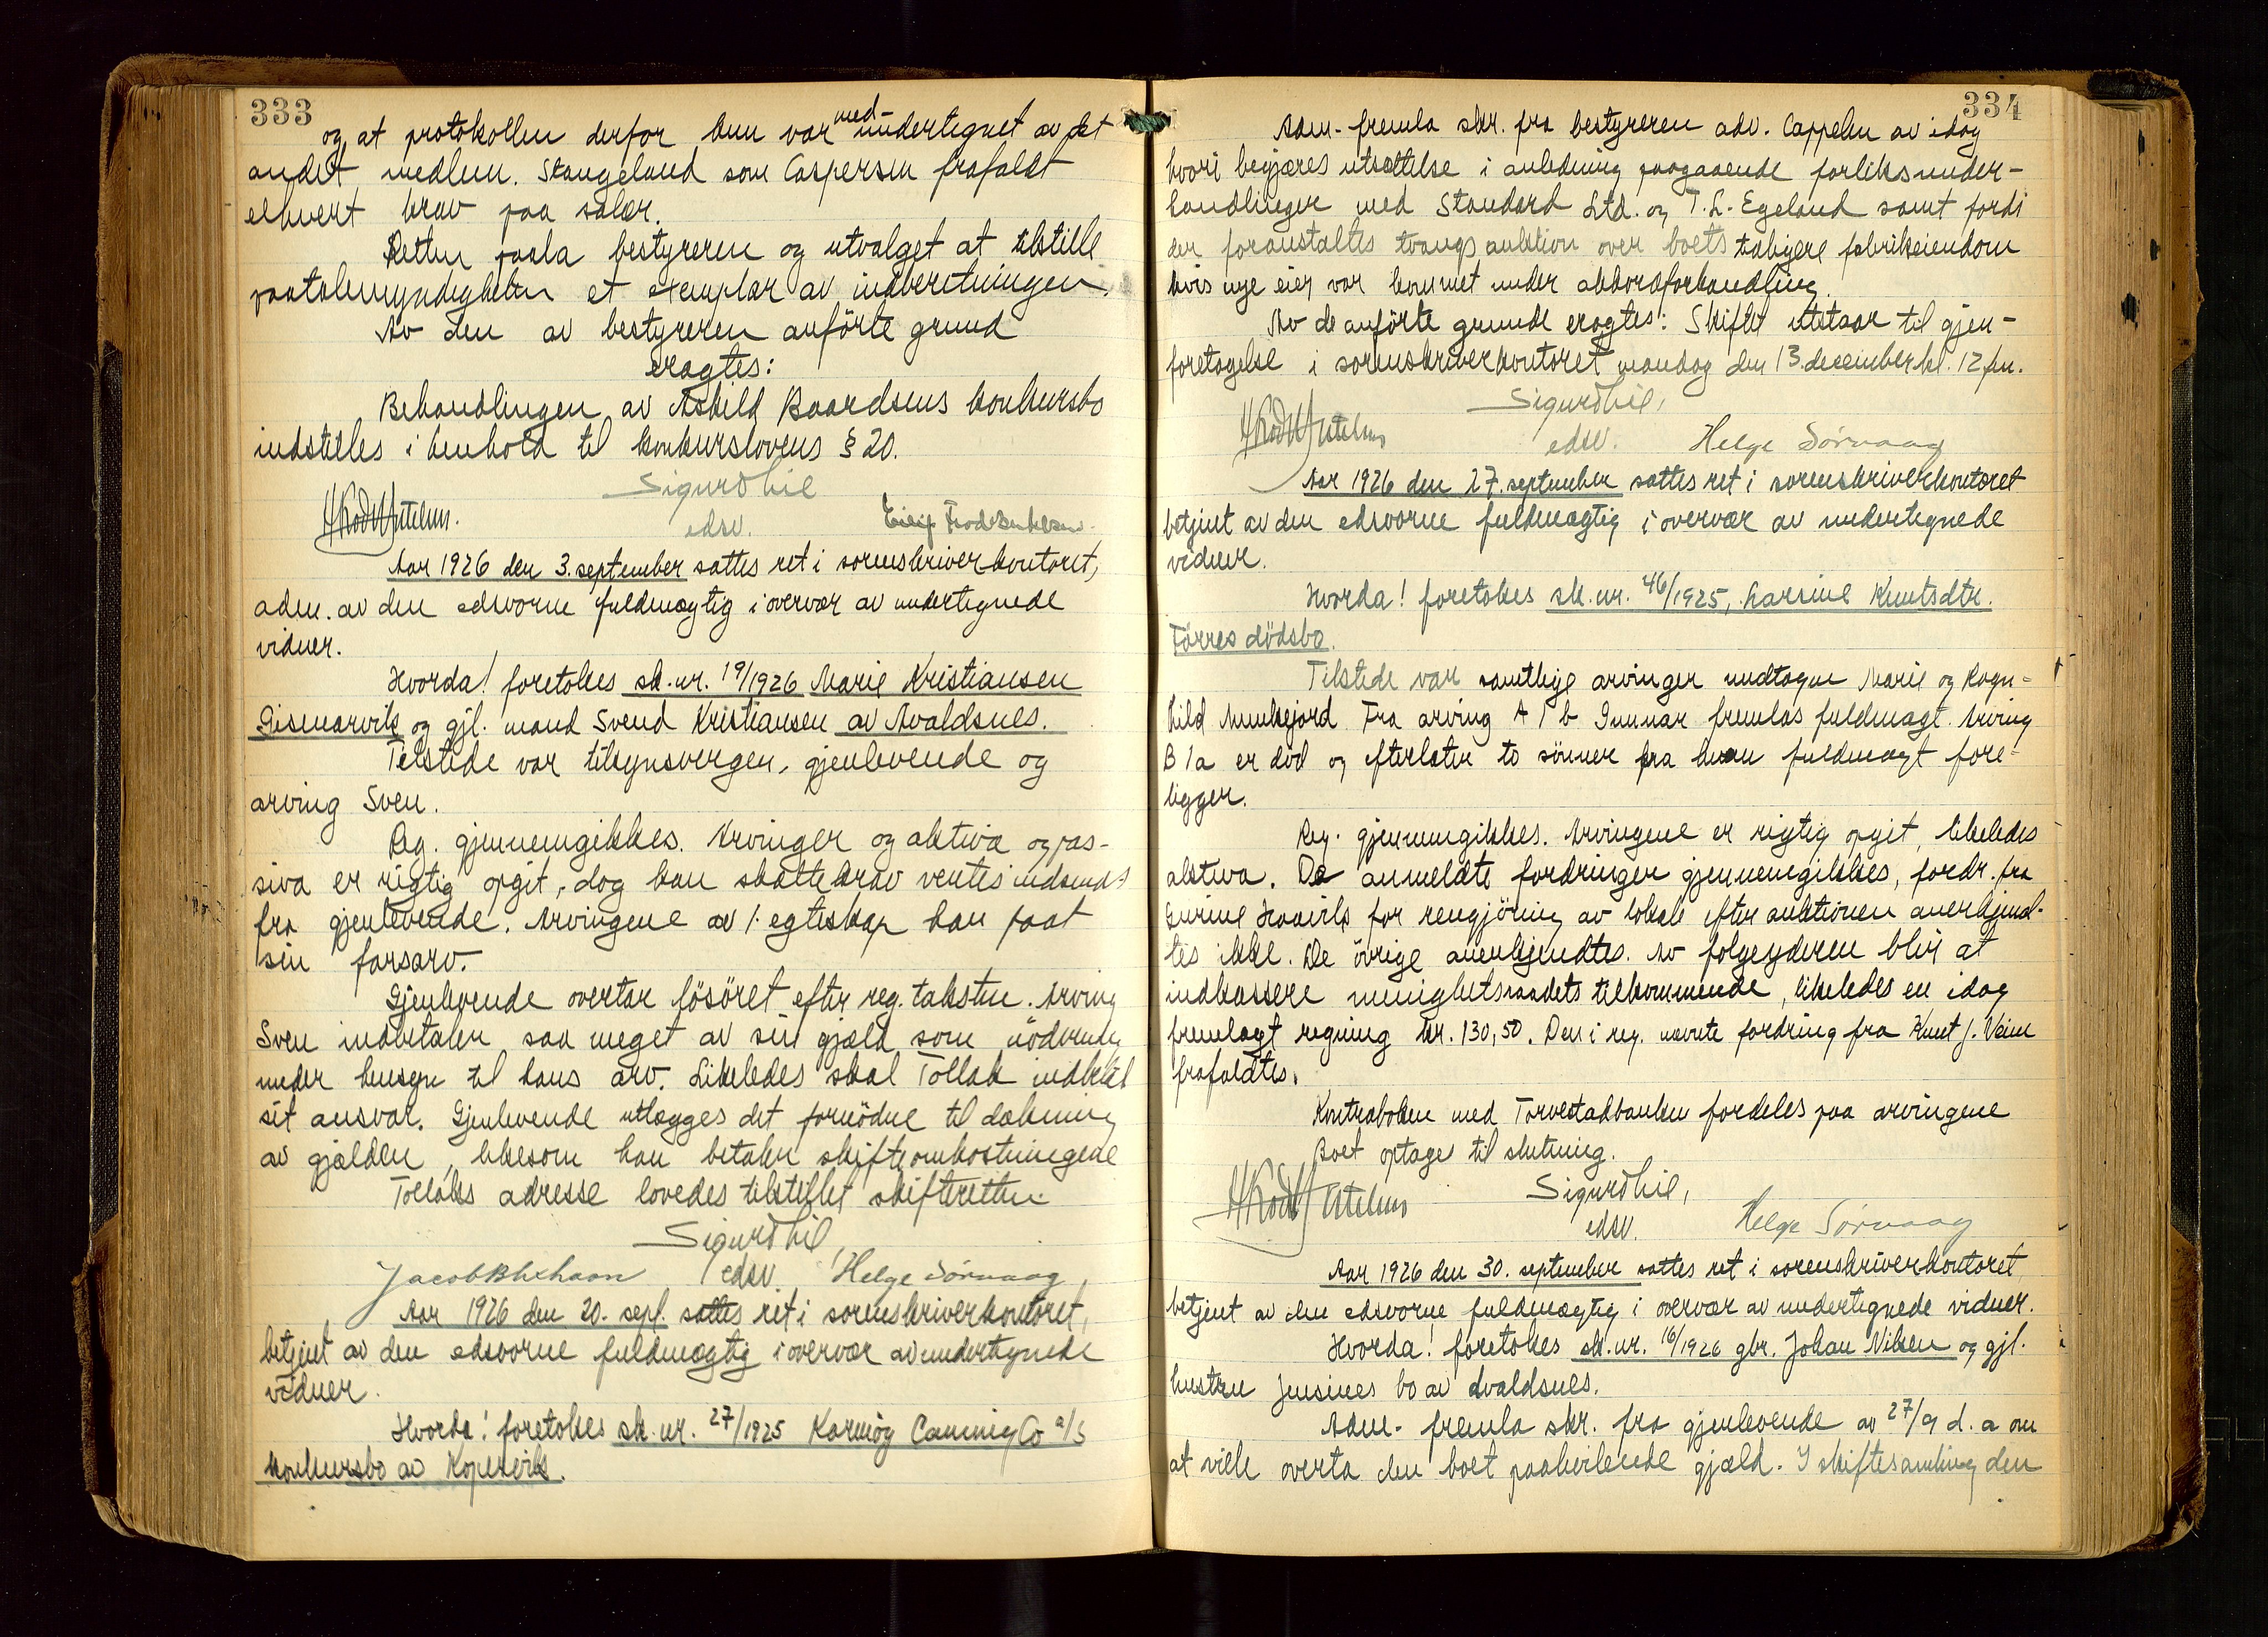 333
og at protokollen derfor kun var med-undertegnet av det
andet medlem. Stangeland som Caspersen frafaldt
ethvert krav paa salær.
Retten paala bestyreren og utvalget at tilstille
paatalemyndigheten et exemplar av indberetningen.
Av den av bestyreren anførte grund
eragtes:
Behandlingen av Askild Baardsens konkursbo
indstilles i henhold til konkurslovens § 20.
Sigurd Lie
edsv.
Aar 1926 den 3. september sattes ret i sorenskriverkontoret,
adm. av den edsvorne fuldmægtig i overvær av undertegnede
vidner.
Hvorda! foretokes sk. nr. 19/1926 Marie Kristiansen
Gismarvik og gjl. mand Svend Kristiansen av Avaldsnes.
Tilstede var tilsynsvergen, gjenlevende og
arving Sven.
Reg. gjennemgikkes. Arvinger og aktiva og pas-
siva er rigtig opgit, dog kan skattekrav ventes indsendt
fra gjenlevende. Arvingene av 1. egteskap har faat
sin farsarv.
Gjenlevende overtar løsøret efter reg. taksten. Arving
Sven indbetaler saa meget av sin gjæld som nødvendig
under hensyn til hans arv. Likeledes skal Tollak indbetale
sit ansvar. Gjenlevende utlægges det fornødne til dækning
av gjælden, likesom han betaler skifteomkostningene
Tollaks adresse lovedes tilstillet skifteretten.
Sigurd Lie,
edsv. Helge Sørvaag,
Aar 1926 den 20. sept. sattes ret i sorenskriverkontoret,
betjent av den edsvorne fuldmægtig i overvær av undertegnede
vidner.
Hvorda! foretokes sk. nr. 27/1925 Karmøy Canning Co a/s
konkursbo av Kopervik.
334
Adm. fremla skr. fra bestyreren adv. Cappelen av idag
hvori begjæres utsættelse i anledning paagaaende forliksunder-
handlinger med Standard Ltd. og T. L. Egeland samt fordi
der foranstaltes tvangsauktion over boets tidligere fabrikeiendom
hvis nye eier var kommet under akkordforhandling.
Av de anførte grunde eragtes: Skiftet utstaar til gjen-
foretagelse i sorenskriverkontoret mandag den 13. december kl. 12 fm.
Sigurd Lie,
edsv. Helge Sørvaag
Aar 1926 den 27. september sattes ret i sorenskriverkontoret
betjent av den edsvorne fuldmægtig i overvær av undertegnede
vidner.
Hvorda! foretokes sk. nr. 46/1925, Larsine Knutsdtr.
Førres dødsbo.
Tilstede var samtlige arvinger undtagen Marie og Ragn-
hild Munkejord. Fra arving A 1 b Gunnar fremlas fuldmagt. Arving
B 1a er død og efterlater to sønner fra hvem fuldmagt fore-
ligger.
Reg. gjennemgikkes. Arvingene er rigtig opgit, likeledes
aktiva. De anmeldte fordringer gjennemgikkes, fordr. fra
for rengjøring av lokale efter auktionen anerkjend-
tes ikke. De øvrige anerkjendtes. Av følgeyderen blir at
indkassere menighetsraadets tilkommende, likeledes en idag
fremlagt regning kr. 130,50. Den i reg. nævnte fordring fra Knut J. Veim
frafaldtes.
Kontraboken med Torvestadbanken fordeles paa arvingene
Boet optages til slutning.
Sigurd Lie,
edsv. Helge Sørvaag
Aar 1926 den 30. september sattes ret i sorenskriverkontoret,
betjent av den edsvorne fuldmægtig i overvær av undertegnede vidner.
Hvorda! foretokes sk. nr. 16/1926 gbr. Johan Nilsen og gjl.
hustru Jensines bo av Avaldsnes.
Adm. fremla skr. fra gjenlevende av 27/9 d. a om
at ville overta den boet paahvilende gjæld. I skiftesamling den